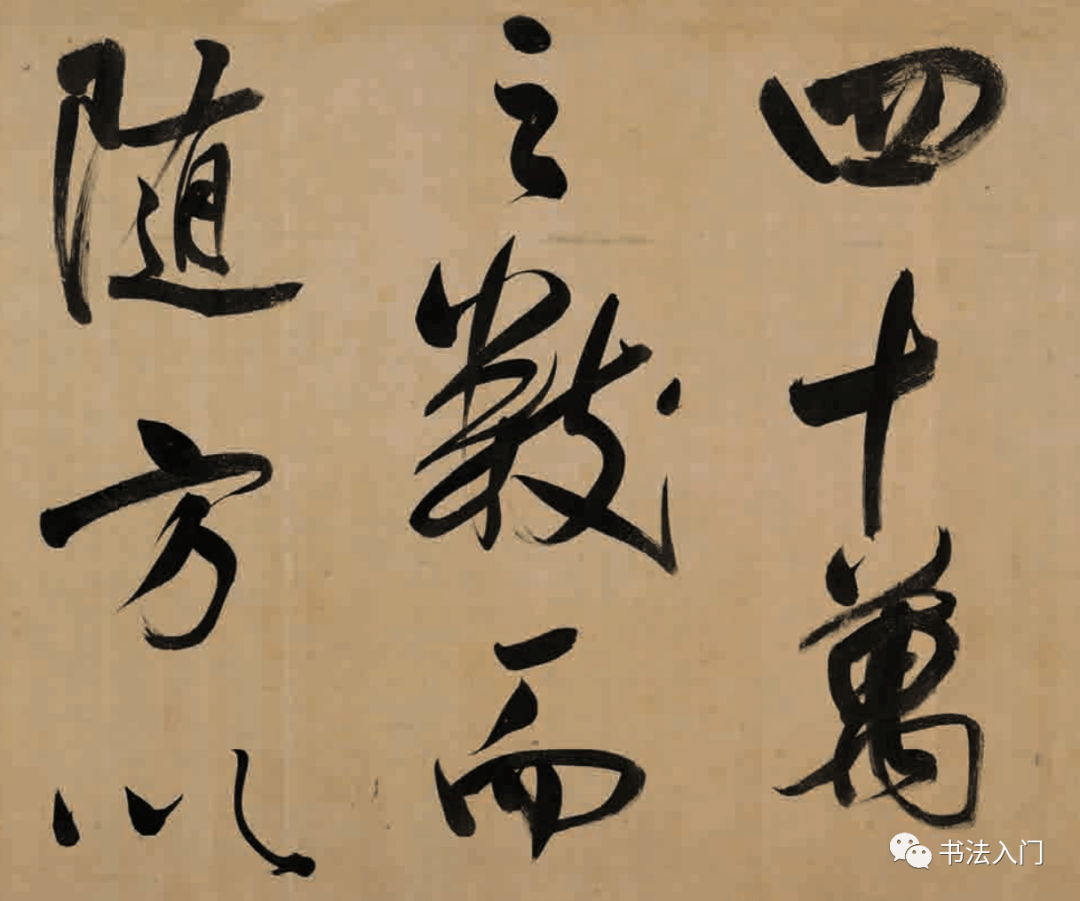 四十萬
之數而
随方以
书法入门